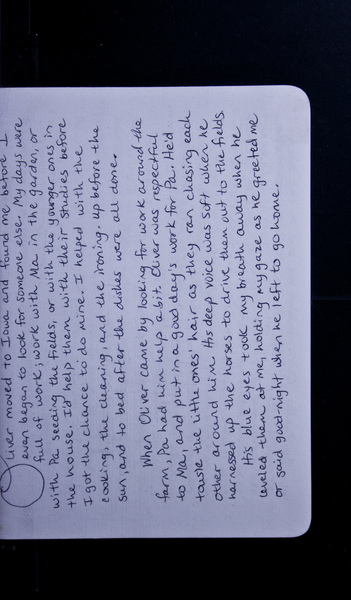 Oliver moved to Iowa and found me before I
even began to look for someone else. My days were
full of work; work with Ma in the garden, or
with Pa seeding the fields, or with the younger ones in
the house. I'd help them with their studies before
I got the chance to do mine. I helped with the
cooking, the cleaning, and the ironing. Up before the
sun, and to bed after the dishes were all done.
When Oliver came by looking for work around the
farm, Pa had him help a bit. Oliver was respectful
to Ma, and put in a good day's work for Pa. He'd
tousle the little ones' hair as they ran chasing each
other around him. His deep voice was soft when he
harnessed up the horses to drive them out to the fields.
His blue eyes took my breath away when he
leveled them at me, holding my gaze as he greeted me
or said good-night when he left to go home.